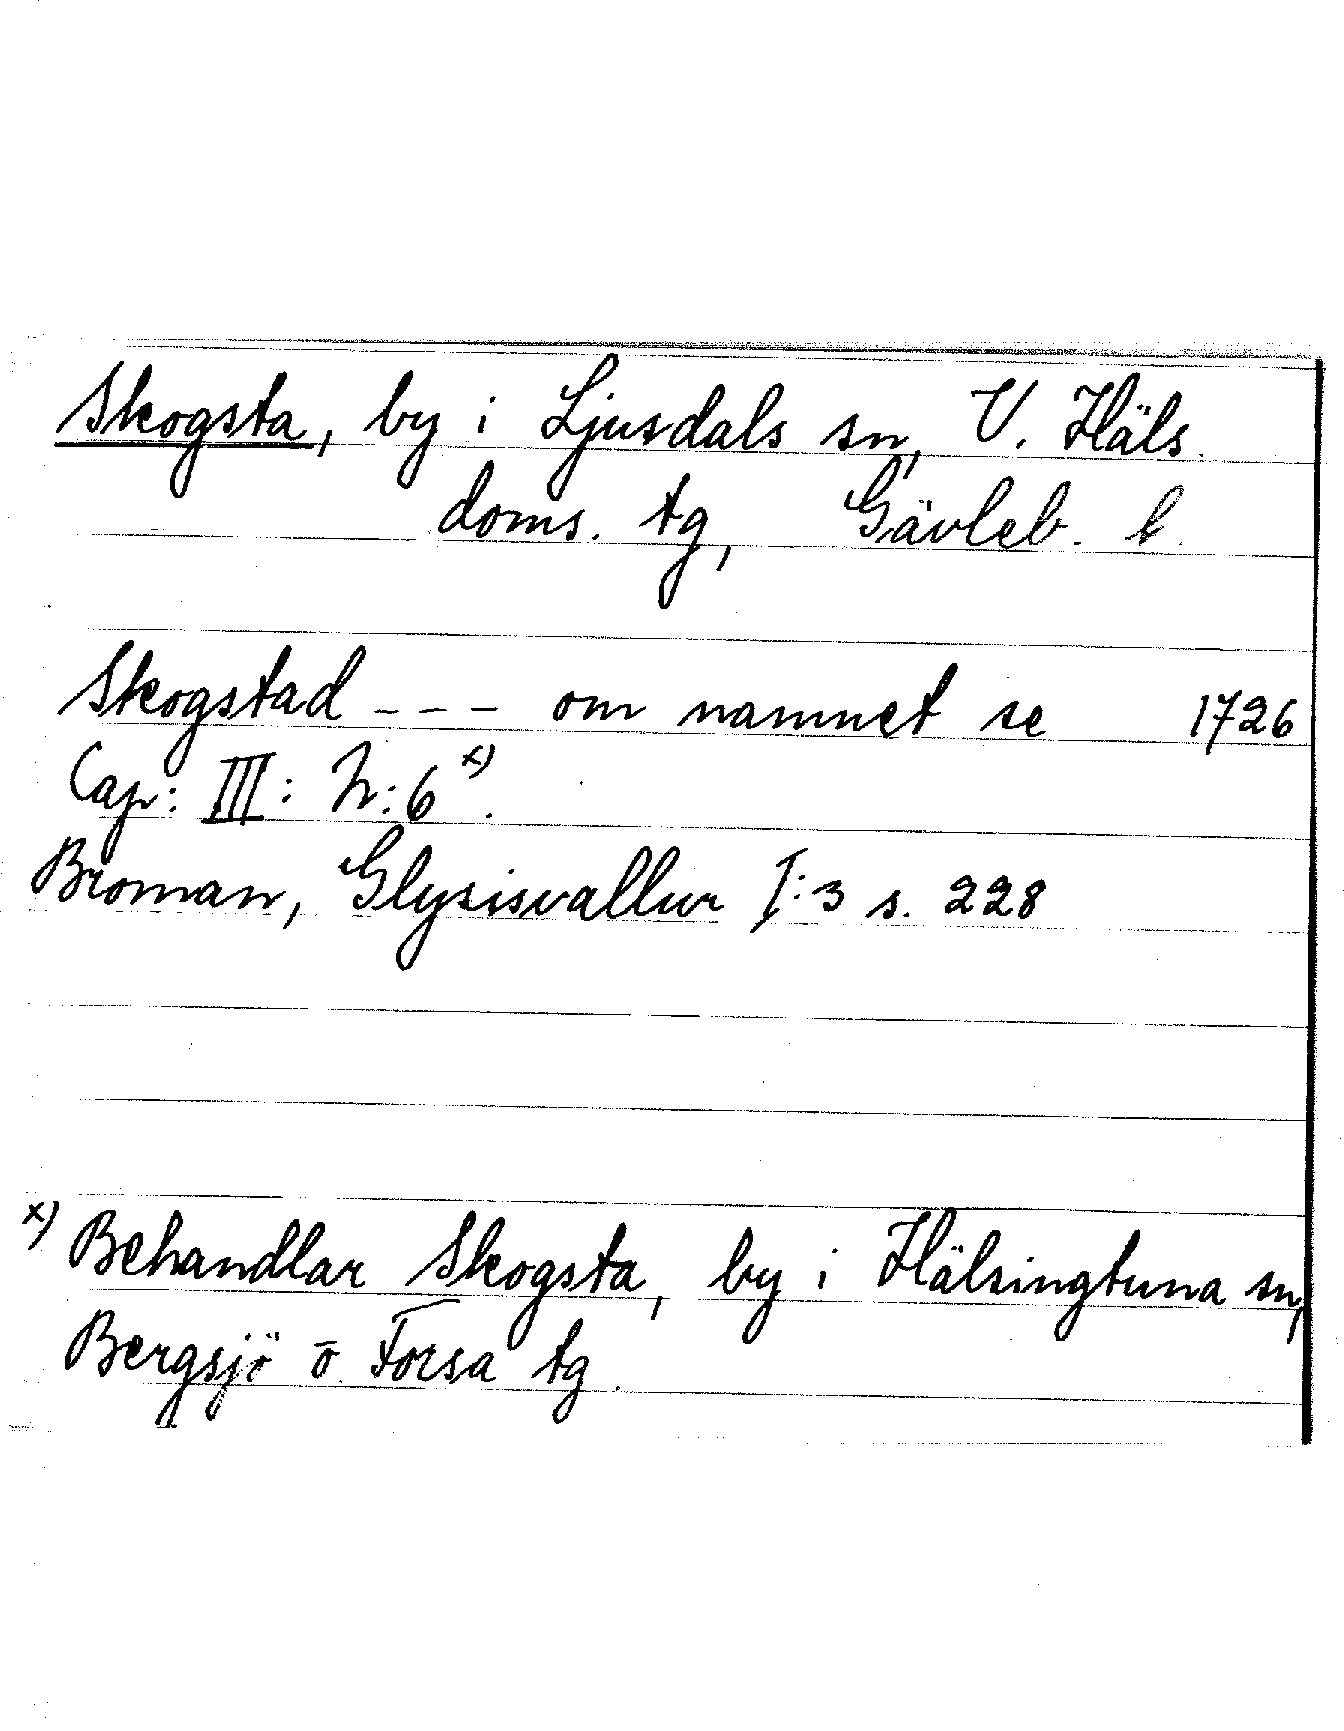 Skogsta, by i Ljusdals sn, V. Häls.
doms. tg, Gävleb. l.
Skogstad - - - om namnet se 1726
Cap: III: N:6 x).
Broman, Glysisvallur I:3 s. 228
x) Behandlar Skogsta, by i Hälsingtuna sn,
Bergsjö o Forsa tg.